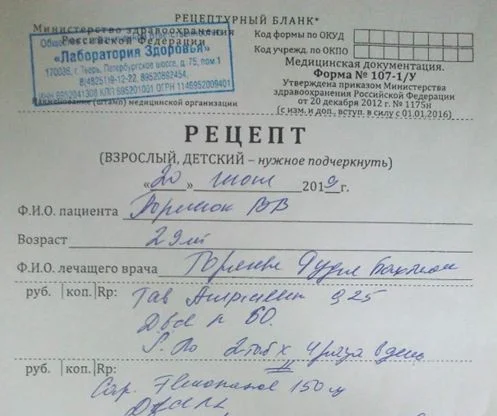 РЕЦЕПТУРНЫЙ БЛАНК*
Министерство здравоохранения
Российской Федерации
«Лаборатория Здоровья»
170036, г. Тверь, Петербургское шоссе, д. 75, пом. 1
8(4825)19-12-22, 89520882454,
ИНН 6952041308 КПП 695201001 ОГРН 1146952009401
Наименование (штамп) медицинской организации
Код формы по ОКУД
Код учрежд. по ОКПО
Медицинская документация.
Форма № 107-1/У
Утверждена приказом Министерства
здравоохранения Российской Федерации
от 20 декабря 2012 г. № 1175н
(с изм. и доп., вступ. в силу с 01.01.2016)
РЕЦЕПТ
(ВЗРОСЛЫЙ, ДЕТСКИЙ – нужное подчеркнуть)
«20» июня 2019 г.
Ф.И.О. пациента ВВ
Возраст 29
Ф.И.О. лечащего врача
руб. |коп.|Rp: Tab 0,25
N 60.
S. По 2 таб x 4 раза в день
руб. |коп.|Rp:
150